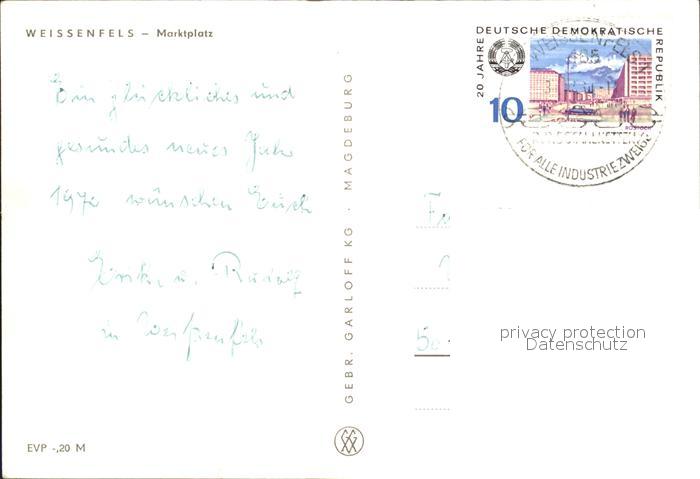 WEISSENFELS – Marktplatz
Ein glückliches und
gesundes neues Jahr
1970 wünschen Euch
Erika u. Rudolf
in Weißenfels
EVP -,20 M
GEBR. GARLOFF KG · MAGDEBURG
20 JAHRE DEUTSCHE DEMOKRATISCHE REPUBLIK
10
ROSTOCK
WEISSENFELS
FÜR ALLE INDUSTRIEZWEIGE
privacy protection
Datenschutz